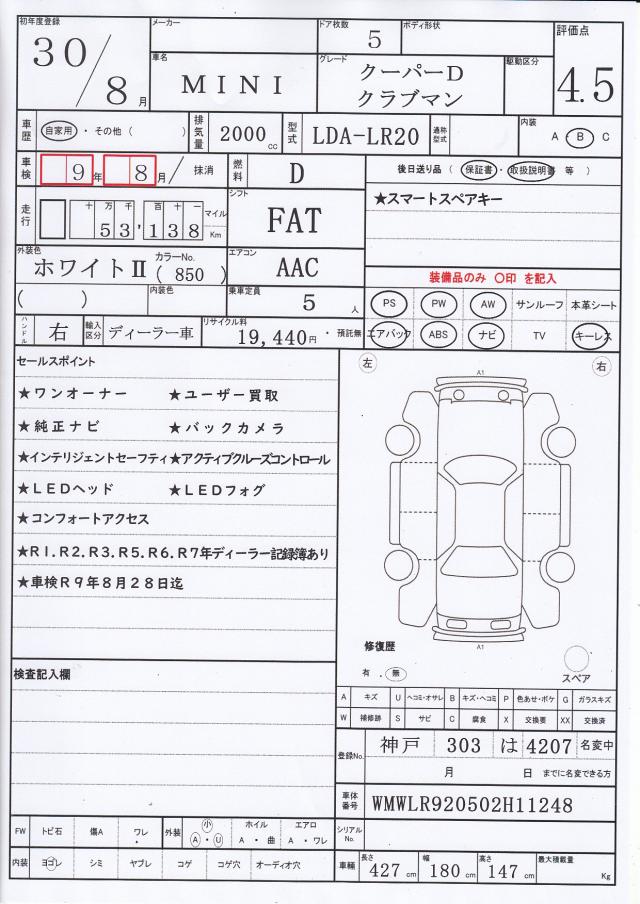 初年度登録 メーカー ドア枚数 5 ボディ形状 評価点
30/8月
車名 MINI グレード クーパーD クラブマン 駆動区分 4.5
車歴 自家用・その他( ) 排気量 2000cc 型式 LDA-LR20 通称型式 内装 A・B C
車検 9年 8月/ 抹消 燃料 D 後日送り品( 保証書・取扱説明書 等 )
走行 十万千百十一 53,138 マイル Km シフト FAT ★スマートスペアキー
外装色 ホワイトⅡ カラーNo. (850) エアコン AAC
装備品のみ 〇印 を記入
( ) 内装色 乗車定員 5人 PS PW AW サンルーフ 本革シート
ハンドル 右 輸入区分 ディーラー車 リサイクル料 19,440円・預託無 エアバック ABS ナビ TV キーレス
セールスポイント 左 A1 右
★ワンオーナー ★ユーザー買取
★純正ナビ ★バックカメラ
★インテリジェントセーフティ★アクティブクルーズコントロール
★LEDヘッド ★LEDフォグ
★コンフォートアクセス
★R1.R2.R3.R5.R6.R7年ディーラー記録簿あり
★車検R9年8月28日迄
A1
修復歴
有・無
スペア
検査記入欄
A キズ U ヘコミ・オサレ B キズ・ヘコミ P 色あせ・ボケ G ガラスキズ
W 補修跡 S サビ C 腐食 X 交換要 XX 交換済
登録No. 神戸 303 は 4207 名変中
月 日 までに名変できる方
車体番号 WMWLR920502H11248
FW トビ石 傷A ワレ 外装 小 A・U ホイル A・曲 エアロ A・ワレ シリアルNo.
内装 ヨゴレ シミ ヤブレ コゲ コゲ穴 オーディオ穴 車輛 長さ 427cm 幅 180cm 高さ 147cm 最大積載量 Kg